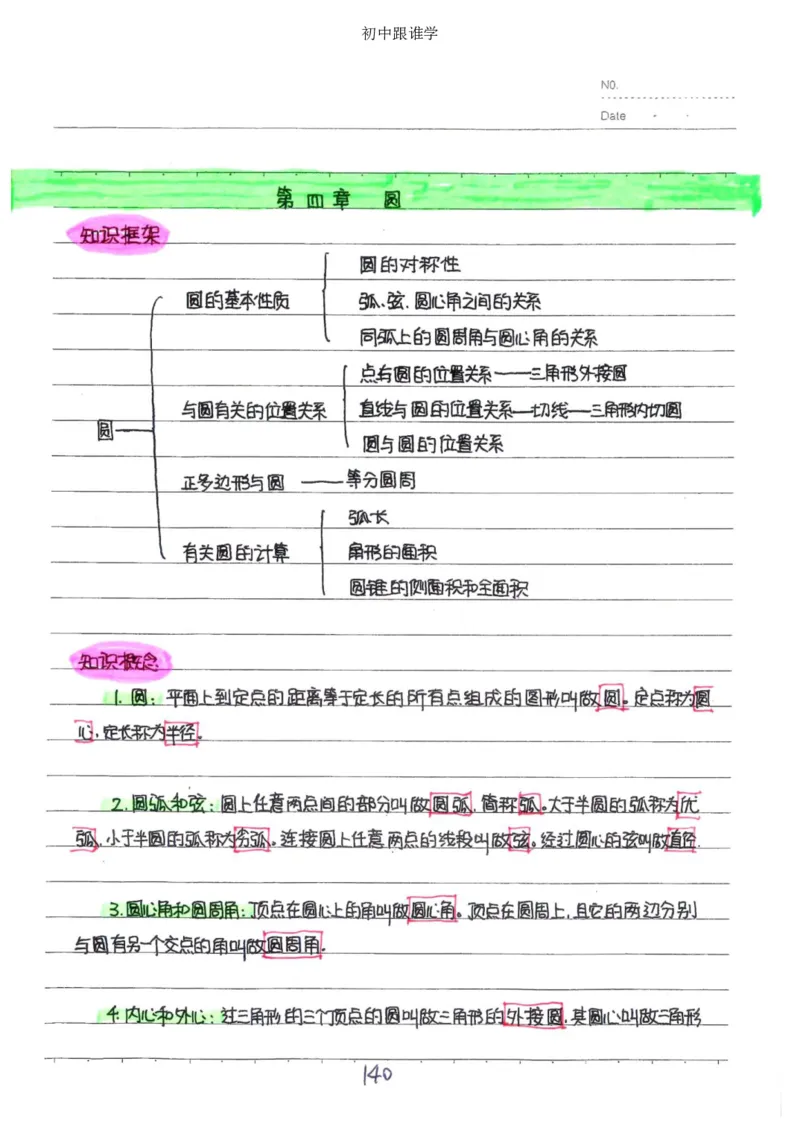 初中跟谁学
NO.
Date
第四章 圆
知识框架
圆的对称性
圆的基本性质
弧、弦、圆心角之间的关系
同弧上的圆周角与圆心角的关系
点与圆的位置关系——三角形外接圆
与圆有关的位置关系
直线与圆的位置关系—切线—三角形内切圆
圆
圆与圆的位置关系
正多边形与圆——等分圆周
弧长
有关圆的计算
扇形的面积
圆锥的侧面积和全面积
知识概念
1.圆:平面上到定点的距离等于定长的所有点组成的图形叫做圆。定点称为圆
心,定长称为半径。
2.圆弧和弦:圆上任意两点间的部分叫做圆弧,简称弧。大于半圆的弧称为优
弧,小于半圆的弧称为劣弧。连接圆上任意两点的线段叫做弦。经过圆心的弦叫做直径.
3.圆心角和圆周角:顶点在圆心上的角叫做圆心角。顶点在圆周上,且它的两边分别
与圆有另一个交点的角叫做圆周角。
4.内心和外心:过三角形的三个顶点的圆叫做三角形的外接圆,其圆心叫做三角形
140